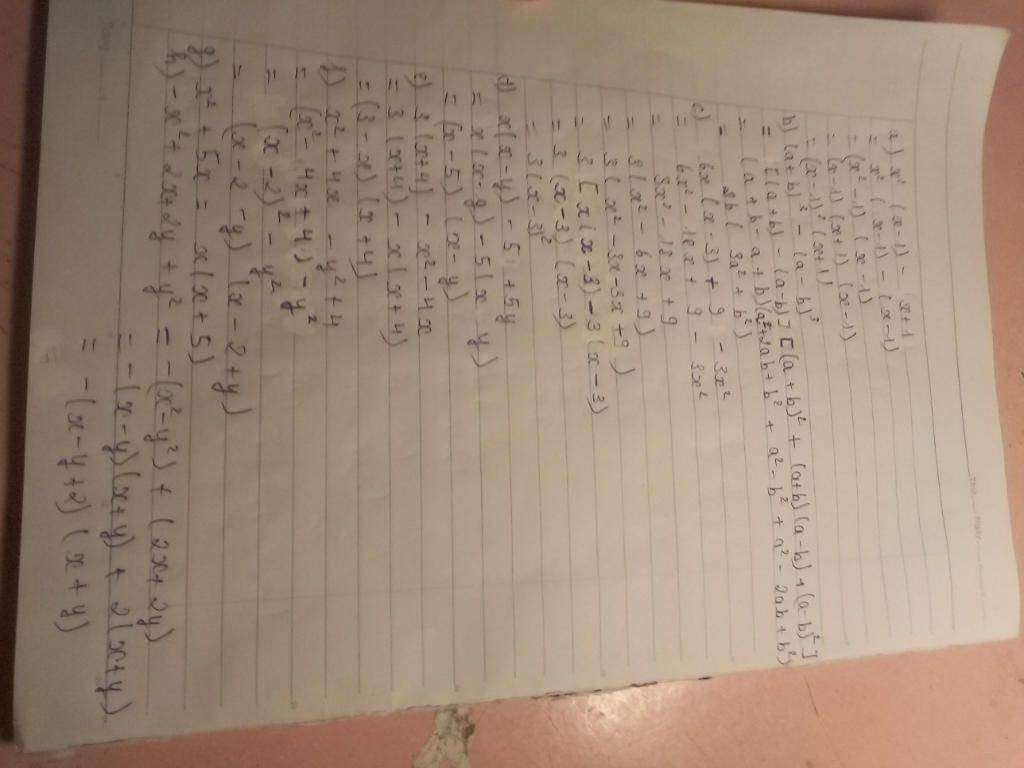 a) x² (x-1) - x+1
= x² (x-1) - (x-1)
= (x²-1) (x-1)
= (x-1) (x+1) (x-1)
= (x-1)² (x+1)
b) (a+b)³ - (a-b)³
= [(a+b) - (a-b)] [(a+b)² + (a+b)(a-b) + (a-b)²]
= (a+b-a+b)(a²+2ab+b² + a²-b² + a²-2ab+b²)
= 2b (3a²+b²)
c) 6x (x-3) + 9 - 3x²
= 6x² - 18x + 9 - 3x²
= 3x² - 18x + 9
= 3(x² - 6x + 9)
= 3(x² - 3x - 3x + 9)
= 3 [x(x-3) - 3(x-3)]
= 3 (x-3) (x-3)
= 3(x-3)²
d) x(x-y) - 5x + 5y
= x(x-y) - 5(x y)
= (x-5) (x-y)
e) 3(x+4) - x² - 4x
= 3(x+4) - x(x+4)
= (3-x) (x+4)
f) x² + 4x - y² + 4
= (x² - 4x + 4) - y²
= (x-2)² - y²
= (x-2-y) (x-2+y)
g) x² + 5x = x(x+5)
h) - x² + 2x + 2y + y² = -(x²-y²) + (2x+2y)
= -(x-y)(x+y) + 2(x+y)
= -(x-y+2) (x+y)